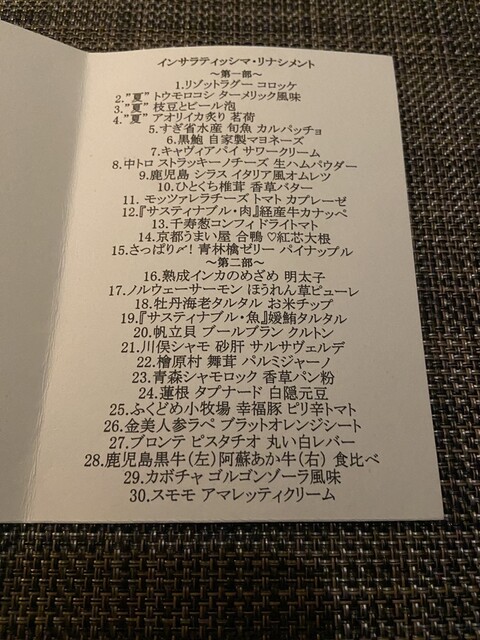 インサラティッシマ・リナシメント
～第一部～
1.リゾットラグー コロッケ
2."夏" トウモロコシ ターメリック風味
3."夏" 枝豆とビール泡
4."夏" アオリイカ炙り 茗荷
5.すぎ省水産 旬魚 カルパッチョ
6.黒鮑 自家製マヨネーズ
7.キャヴィアパイ サワークリーム
8.中トロ ストラッキーノチーズ 生ハムパウダー
9.鹿児島 シラス イタリア風オムレツ
10.ひとくち椎茸 香草バター
11. モッツァレラチーズ トマト カプレーゼ
12.『サスティナブル・肉』経産牛カナッペ
13.千寿葱コンフィドライトマト
14.京都うまい屋 合鴨 ♡紅芯大根
15.さっぱり〆! 青林檎ゼリー パイナップル
～第二部～
16.熟成インカのめざめ 明太子
17.ノルウェーサーモン ほうれん草ピューレ
18.牡丹海老タルタル お米チップ
19.『サスティナブル・魚』媛鮪タルタル
20.帆立貝 ブールブラン クルトン
21.川俣シャモ 砂肝 サルサヴェルデ
22.檜原村 舞茸 パルミジャーノ
23.青森シャモロック 香草パン粉
24.蓮根 タプナード 白隠元豆
25.ふくどめ小牧場 幸福豚 ピリ辛トマト
26.金美人参ラペ ブラットオレンジシート
27.ブロンテ ピスタチオ 丸い白レバー
28.鹿児島黒牛(左)阿蘇あか牛(右) 食比べ
29.カボチャ ゴルゴンゾーラ風味
30.スモモ アマレッティクリーム